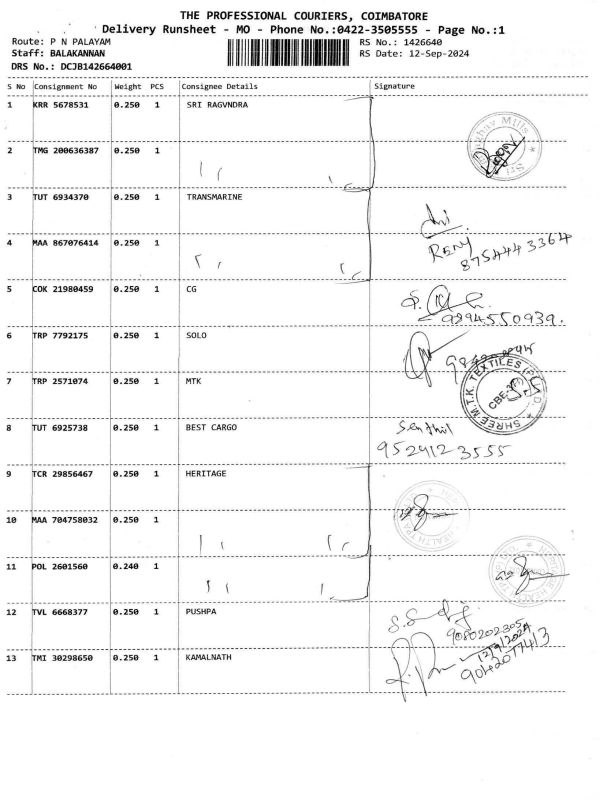 THE PROFESSIONAL COURIERS, COIMBATORE
Delivery Runsheet - MO - Phone No.:0422-3505555 - Page No.:1
Route: P N PALAYAM RS No.: 1426640
Staff: BALAKANNAN RS Date: 12-Sep-2024
DRS No.: DCJB142664001
S No Consignment No Weight PCS Consignee Details Signature
1 KRR 5678531 0.250 1 SRI RAGVNDRA
Mills
Sri
2 TMG 200636387 0.250 1
3 TUT 6934370 0.250 1 TRANSMARINE
RENY
8754443364
4 MAA 867076414 0.250 1
5 COK 21980459 0.250 1 CG
9894550939.
6 TRP 7792175 0.250 1 SOLO
7 TRP 2571074 0.250 1 MTK
SHREE M.T.K. TEXTILES
CBE
8 TUT 6925738 0.250 1 BEST CARGO
Senthil
9529123555
9 TCR 29856467 0.250 1 HERITAGE
10 MAA 704758032 0.250 1
11 POL 2601560 0.240 1
12 TVL 6668377 0.250 1 PUSHPA
9080202305
12/9/2024
13 TMI 30298650 0.250 1 KAMALNATH
9042077413